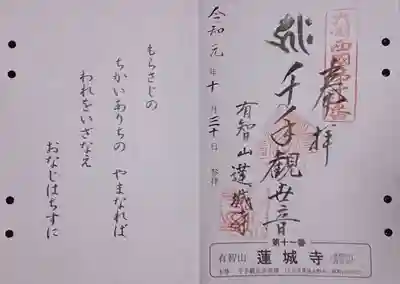 奉拝
千手観世音
有智山 蓮城寺
令和元年十月三十日
第十一番
有智山 蓮城寺
もらさじの
ちかいありちの やまなれば
われをいざなえ
おなじはちすに